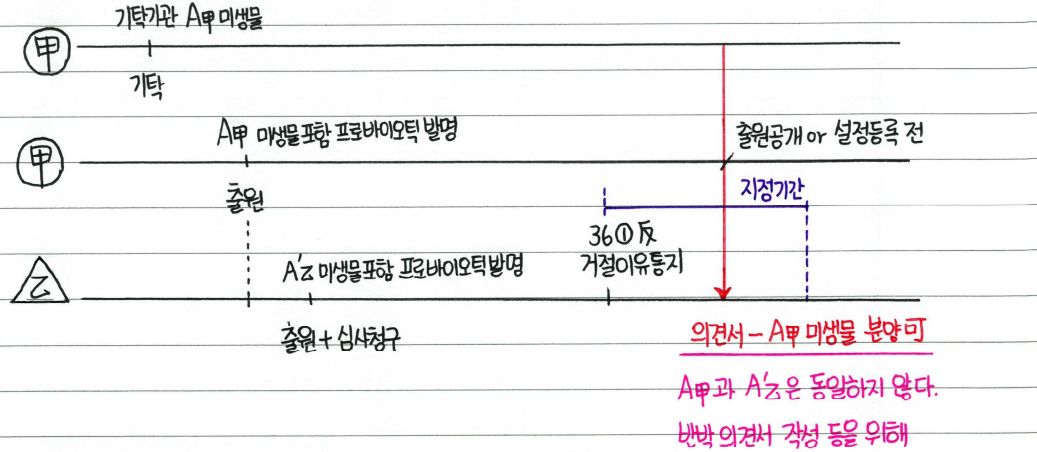 기탁기관 A甲 미생물
甲
기탁
A甲 미생물 포함 프로바이오틱 발명
출원공개 or 설정등록 전
甲
지정기간
출원
36① 反
거절이유통지
A'乙 미생물 포함 프로바이오틱 발명
乙
출원 + 심사청구
의견서 - A甲 미생물 분양 可
A甲과 A'乙은 동일하지 않다.
반박 의견서 작성 등을 위해